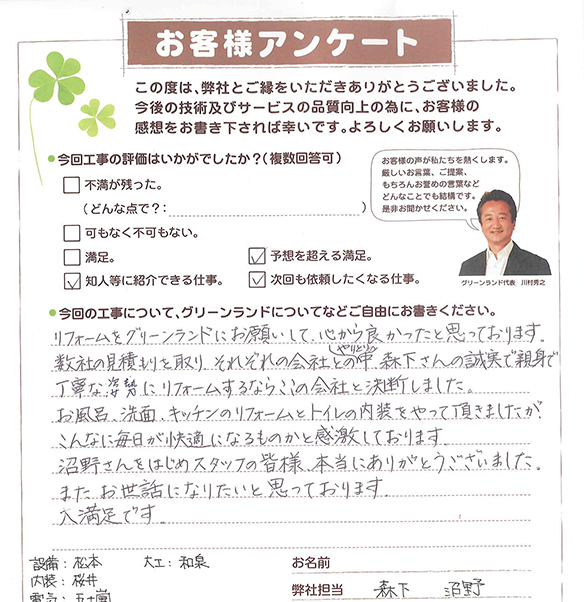 お客様アンケート
この度は、弊社とご縁をいただきありがとうございました。
今後の技術及びサービスの品質向上の為に、お客様の
感想をお書き下されば幸いです。よろしくお願いします。
今回工事の評価はいかがでしたか?(複数回答可)
不満が残った。
(どんな点で?: )
可もなく不可もない。
満足。
予想を超える満足。
知人等に紹介できる仕事。
次回も依頼したくなる仕事。
お客様の声が私たちを熱くします。
厳しいお言葉、ご提案、
もちろんお誉めの言葉など
どんなことでも結構です。
是非お聞かせください。
グリーンランド代表 川村秀之
今回の工事について、グリーンランドについてなどご自由にお書きください。
リフォームをグリーンランドにお願いして、心から良かったと思っております。
数社の見積もりを取り、それぞれの会社とのやりとりの中、森下さんの誠実で親身で
丁寧な姿勢にリフォームするならここの会社と決断しました。
お風呂、洗面、キッチンのリフォームとトイレの内装をやって頂きましたが
こんなに毎日が快適になるものかと感激しております。
沼野さんをはじめスタッフの皆様、本当にありがとうございました。
また、お世話になりたいと思っております。
大満足です。
設備:松本 大工:和泉
内装:桜井
電気:五十嵐
お名前
弊社担当 森下 沼野